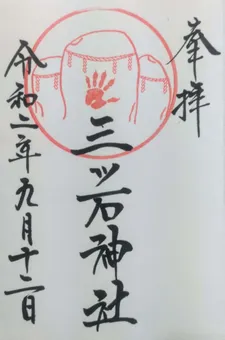 奉拝
三ッ石神社
令和二年九月十二日